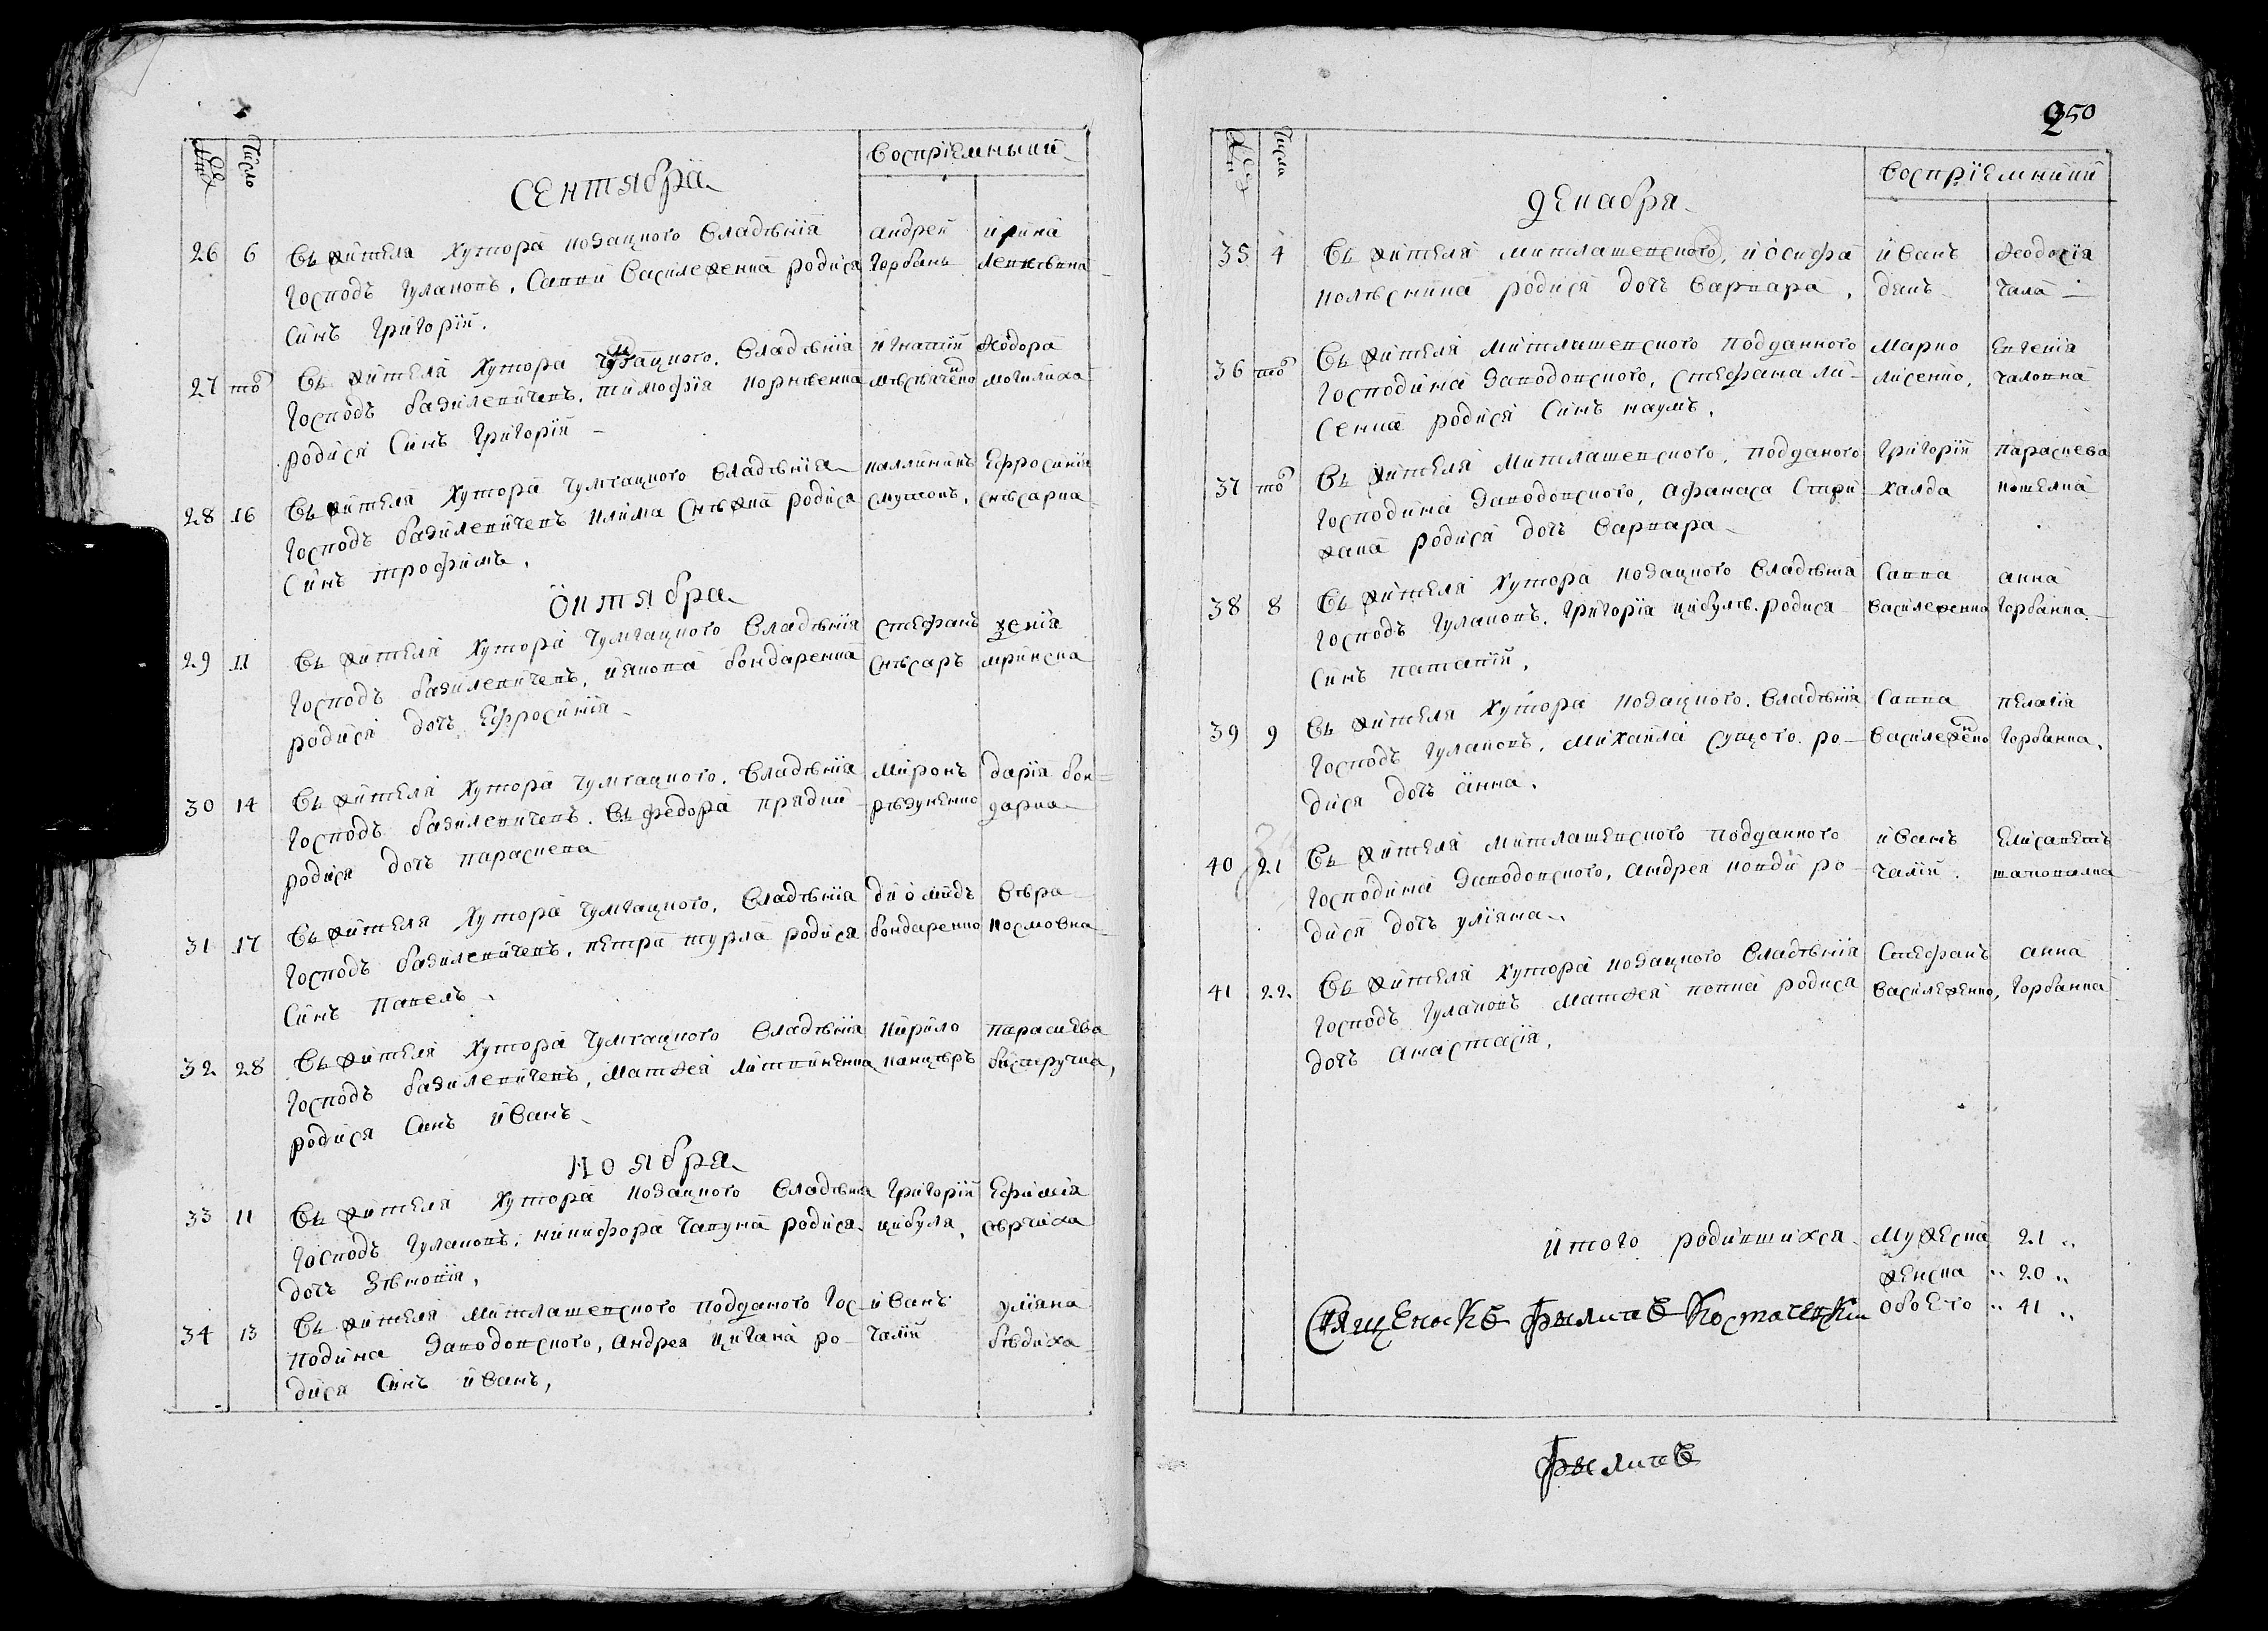 Число
воспрiемныий
сентября
26 6 Въ жителя хутора козацкого владѣнiя
Господъ Гулаковъ, Саввы Василеженка родися
синъ григорiй.
андрей
Горбань
ирина
Левковна
27 то Въ жителя хутора Чумгацкого. владѣнiя
Господъ базилевичевъ. тимофiя корнѣенка
родися синъ григорiй
игнатiй
ѳеодора
могилиха
28 16 Въ жителя хутора чумгацкого владѣнiя
Господъ базилевичевъ клима снѣжка родися
синъ трофимъ.
каллиникъ
смутокъ.
Ефросинiя
снѣсарка
октября
29 11 Въ жителя хутора чумгацкого владѣнiя
Господъ базилевичевъ, иякова бондаренка
родися дочъ Ефросинiя
стефанъ
снѣсаръ
ѯенiя
30 14 Въ жителя хутора чумгацкого. владѣнiя
Господъ базилевичевъ. въ федора прядки
родися дочъ параскева
Миронъ
рѣзуненко
дарiя бон=
дарка
31 17 Въ жителя хутора чумгацкого, владѣнiя
Господъ базилевичевъ, петра турла родися
синъ павелъ
дiомидъ
бондаренко
вѣра
Космовна
32 28 Въ жителя хутора чумгацкого владѣнiя
Господъ базилевичевъ, матѳея литвиненка
родися синъ иванъ
кирило
канцѣръ
параскева
бистручка,
ноября
33 11 Въ жителя хутора козацкого владѣнiя
Господъ Гулаковъ, никифора чапуна родися
дочъ Зѣновiя,
григорiй
цибуля,
Ефимiя
сѣрчиха
34 13 Въ жителя митлашевского подданого Гос-
подина Заводовского, андрея цигана ро-
дися синъ иванъ,
иванъ
чалiй
улiяна
бѣдиха
250
Числа
воспрiемниий
декабря
35 4 Въ жителя митлашевского, иосифа
колѣсника родися дочъ варвара,
иванъ
дикъ
ѳеодосiя
чала
36 то Въ жителя митлашевского подданного
Господина Заводовского, стефана ли-
сенка родися синъ наумъ,
марко
лисенко,
Евгенiя
чаловна
37 то Въ жителя митлашевского, подданого
Господина Заводовского, афанаса стри
жака родися дочъ варвара
григорiй
халда
параскева
кошелиа
38 8 Въ жителя хутора козацкого владѣнiя
Господъ Гулаковъ. григорiя цибулѣ. родися
синъ патапiй,
савва
василеженко
анна
горбанка
39 9 Въ жителя хутора козацкого. владѣнiя
Господъ Гулаковъ. михаила сущого. ро-
дися дочъ анна.
савва
василеженко
пелагiя
горбанка,
40 21 Въ жителя митлашевского подданного
Господина Заводовского, андрея ковди ро-
дися дочъ улiяна
иванъ
чалiй.
Елисаветъ
шаповалка
41 22 Въ жителя хутора козацкого владѣнiя
Господъ Гулаковъ матѳея попка родися
дочъ анастасiя,
стефанъ
василеженко,
анна
горбанка
итого родившихся мужеска 21
женска 20
обоего 41
Священикъ Филипъ Костачевски
Филипъ